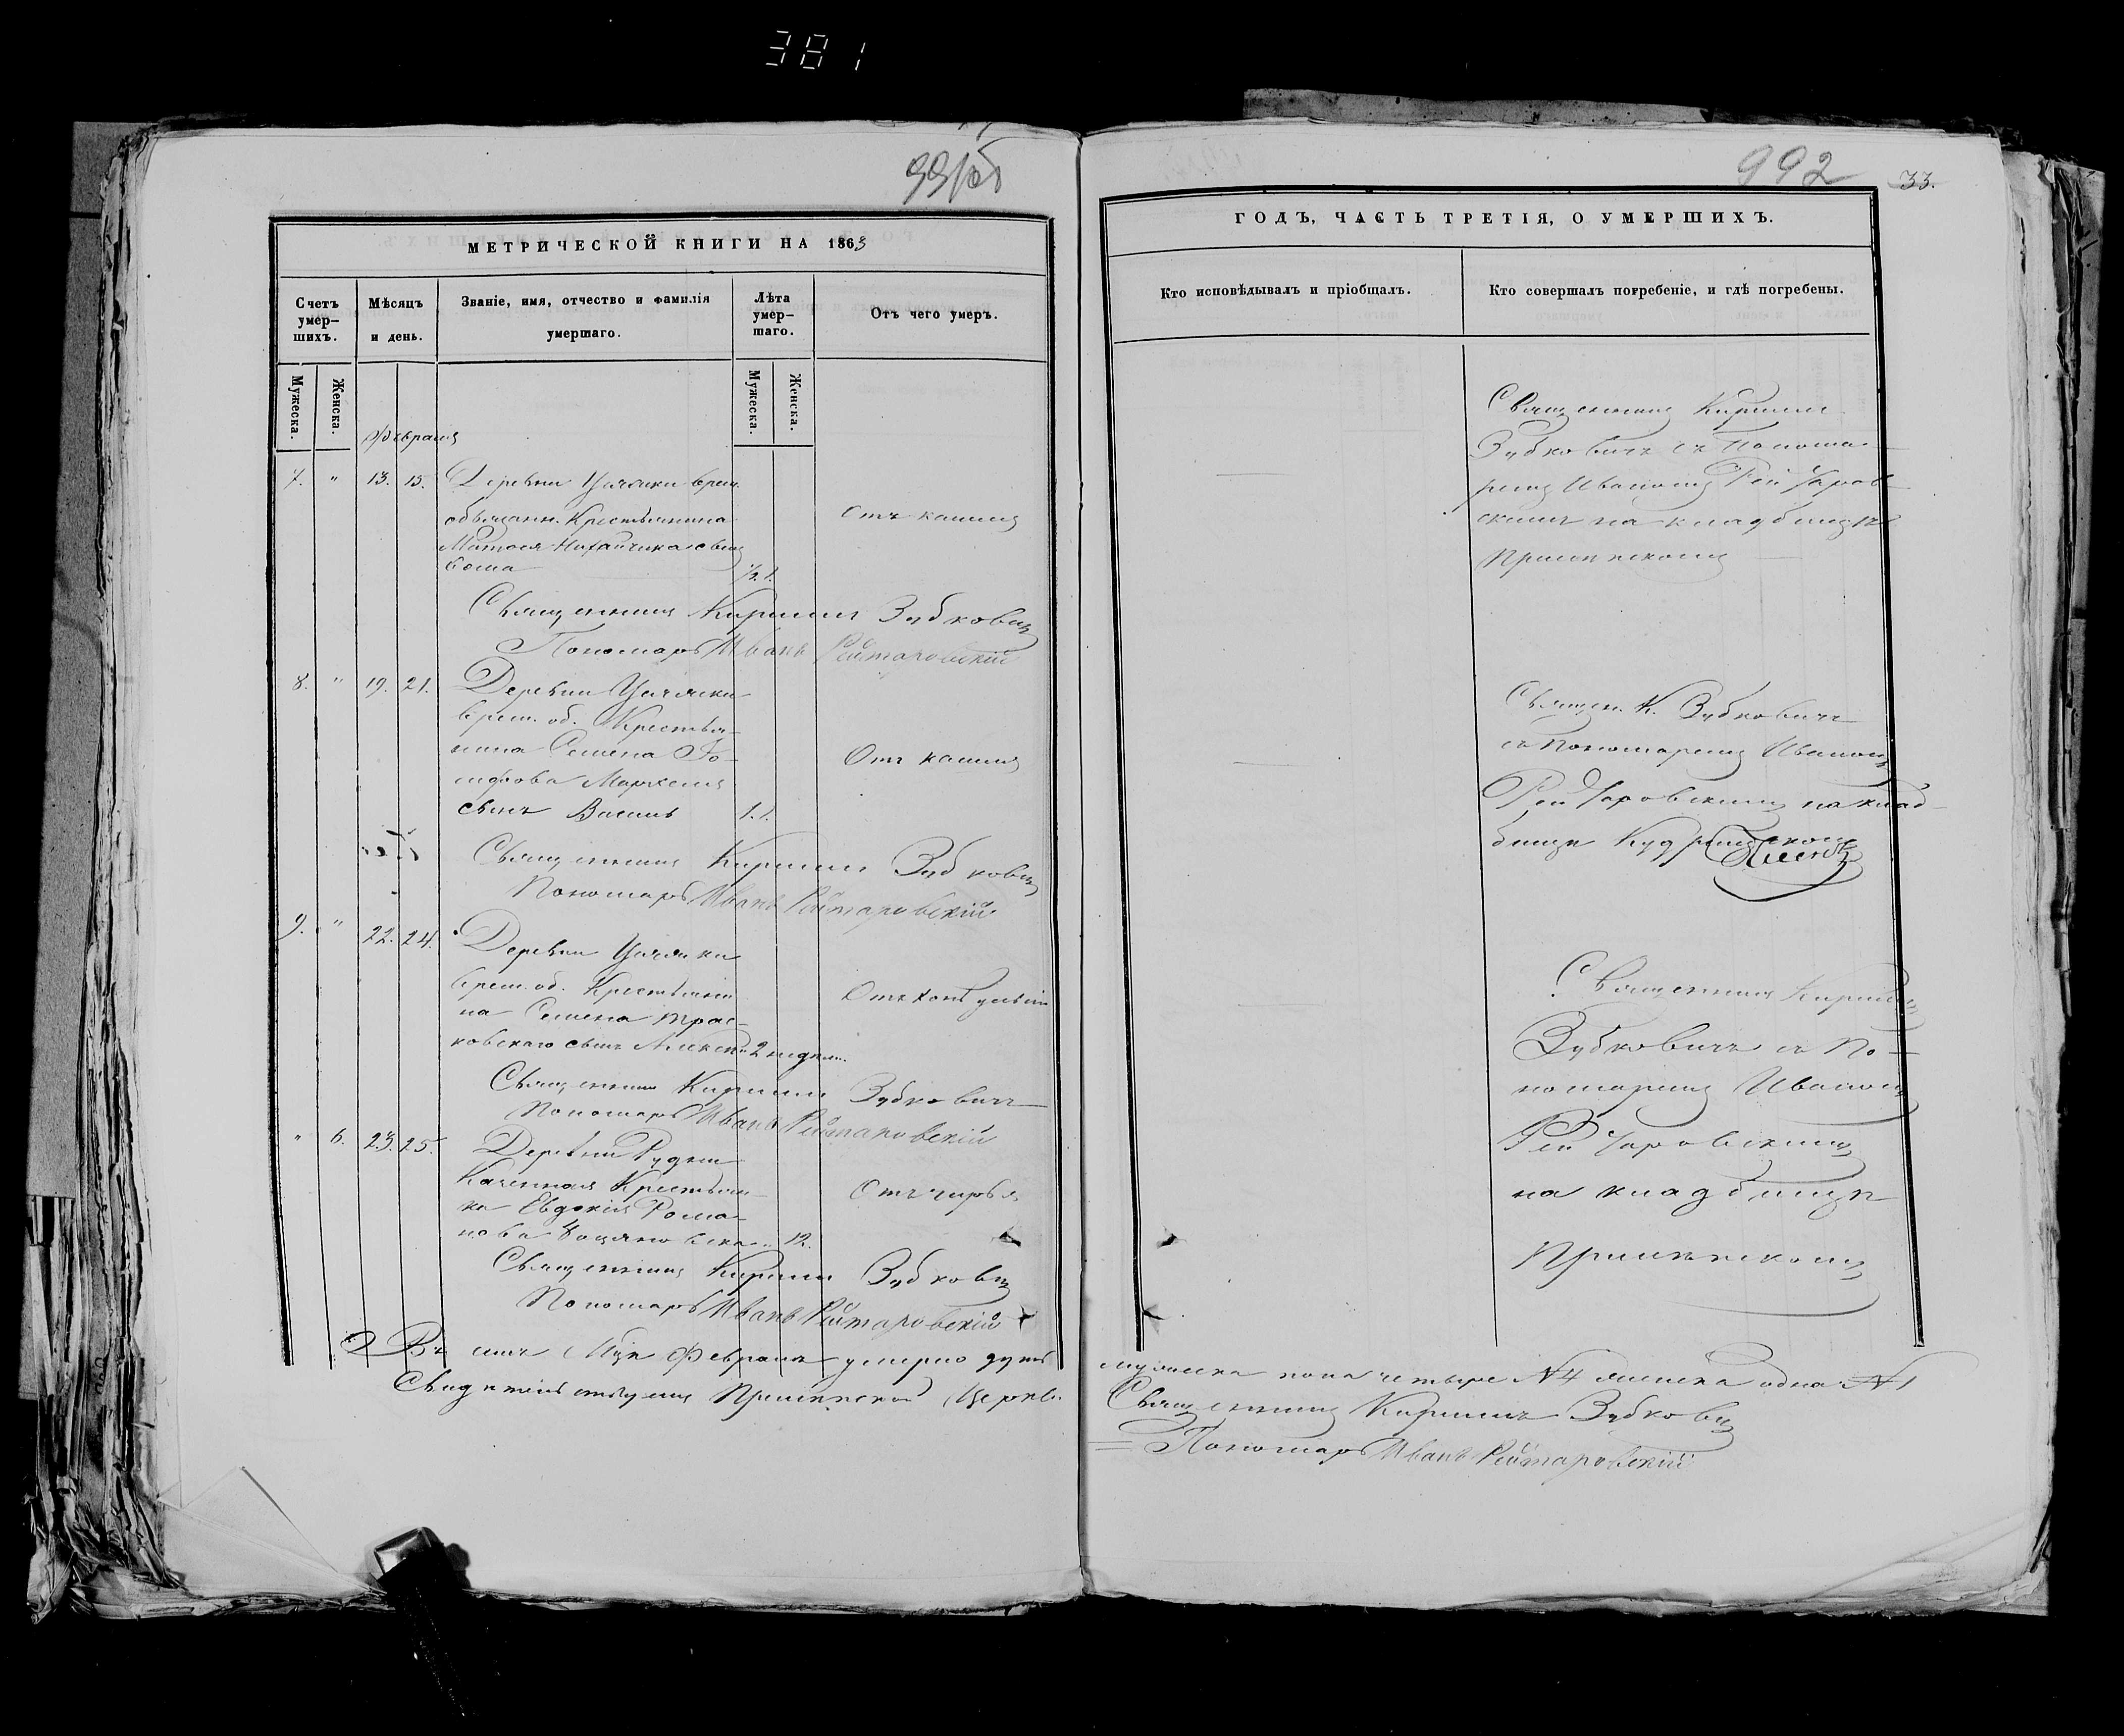 381
992
33.
МЕТРИЧЕСКОЙ КНИГИ НА 1863
Счетъ умер-шихъ.
Мѣсяцъ и день.
Званіе, имя, отчество и фамилія умершаго.
Лѣта умер-шаго.
Отъ чего умеръ.
Мужеска.
Женска.
Мужеска.
Женска.
Февраля
7. " 13. 15. Деревни врем.
обязанн. Крестьянина
сынъ
1/2.
Отъ кашля
Священникъ Кириллъ Зубковичъ
Пономарь Иванъ Рейтаровскій
8. " 19. 21. Деревни
врем. об. Крестья-
нина Семена
сынъ 1.
Отъ кашля
Священникъ Кириллъ Зубковичъ
Пономарь Иванъ Рейтаровскій
9. " 22. 24. Деревни
врем. об. Крестьяни
на Семена Трас-
ковскаго сынъ Алексѣй 2 недѣли
Отъ
Священникъ Кириллъ Зубковичъ
Пономарь Иванъ Рейтаровскій
" 6. 23. 25. Деревни Рудни
Казенная Крестьян-
ка Евдокія Рома-
нова 12.
Священникъ Кириллъ Зубковичъ
Пономарь Иванъ Рейтаровскій
Въ семъ Мцѣ Февралѣ умерло душъ
Свидѣтельствуемъ Церкви
ГОДЪ, ЧАСТЬ ТРЕТІЯ, О УМЕРШИХЪ.
Кто исповѣдывалъ и пріобщалъ.
Кто совершалъ погребеніе, и гдѣ погребены.
Священникъ Кириллъ
Зубковичъ съ Понома-
ремъ Иваномъ Рейтаров-
скимъ на кладбищѣ
Священ. К. Зубковичъ
съ Пономаремъ Иваномъ
Рейтаровскимъ на клад-
бищѣ
Священникъ Кириллъ
Зубковичъ съ По-
номаремъ Иваномъ
Рейтаровскимъ
на кладбищѣ
мужеска пола четыре №4 женска одна №1
Священникъ Кириллъ Зубковичъ
Пономарь Иванъ Рейтаровскій